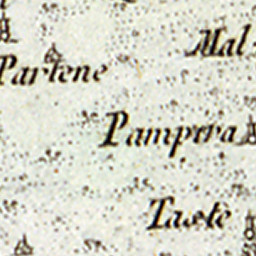 Mal
Partene
Pampira
Taxtè